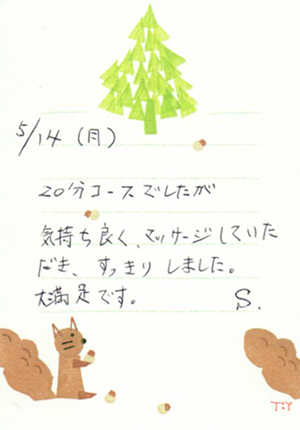 5/14 (月)
20分コースでしたが
気持ち良く、マッサージしていた
だき、すっきりしました。
大満足です。 S.
T.Y